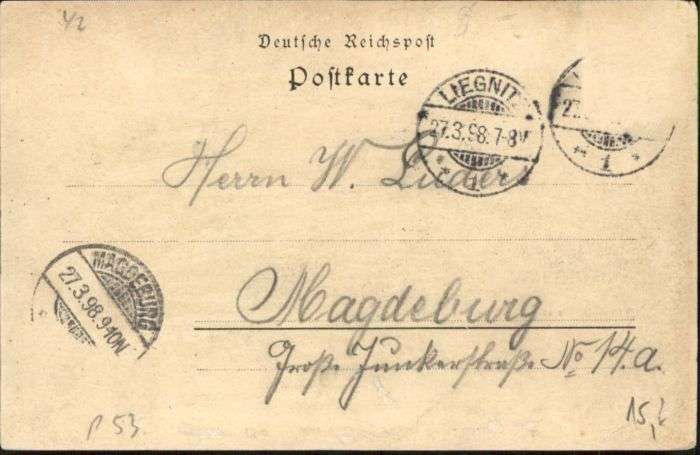 1/2
Deutsche Reichspost
Postkarte
LIEGNITZ
27.3.98.7-8V
1
27.
1
Herrn W. Lüders
MAGDEBURG
27.3.98.9-10N
Magdeburg
Große Junkerstraße No 14.a.
P 53
15,